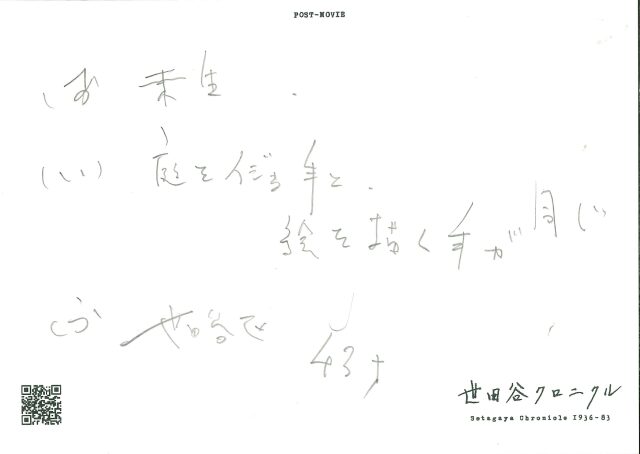 POST-MOVIE
(あ)
(い) 庭をイジる手と、
絵を描く手が同じ
(う) 世田谷で 43才
世田谷クロニクル
Setagaya Chronicle 1936-83